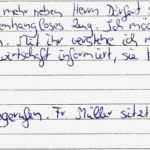 mehr neben Herrn Dürfent
enhangloses Zeug. Ich möc
Mit ihr verstehe ich m
wirtschaft informiert, sie h
gerufen. Fr Müller sitzt